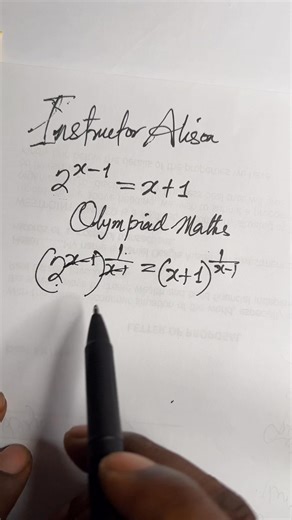 Instructor Alisen
2^{x-1} = x+1
Olympiad Maths
(2^{x-1})^{\frac{1}{x-1}} = (x+1)^{\frac{1}{x-1}}